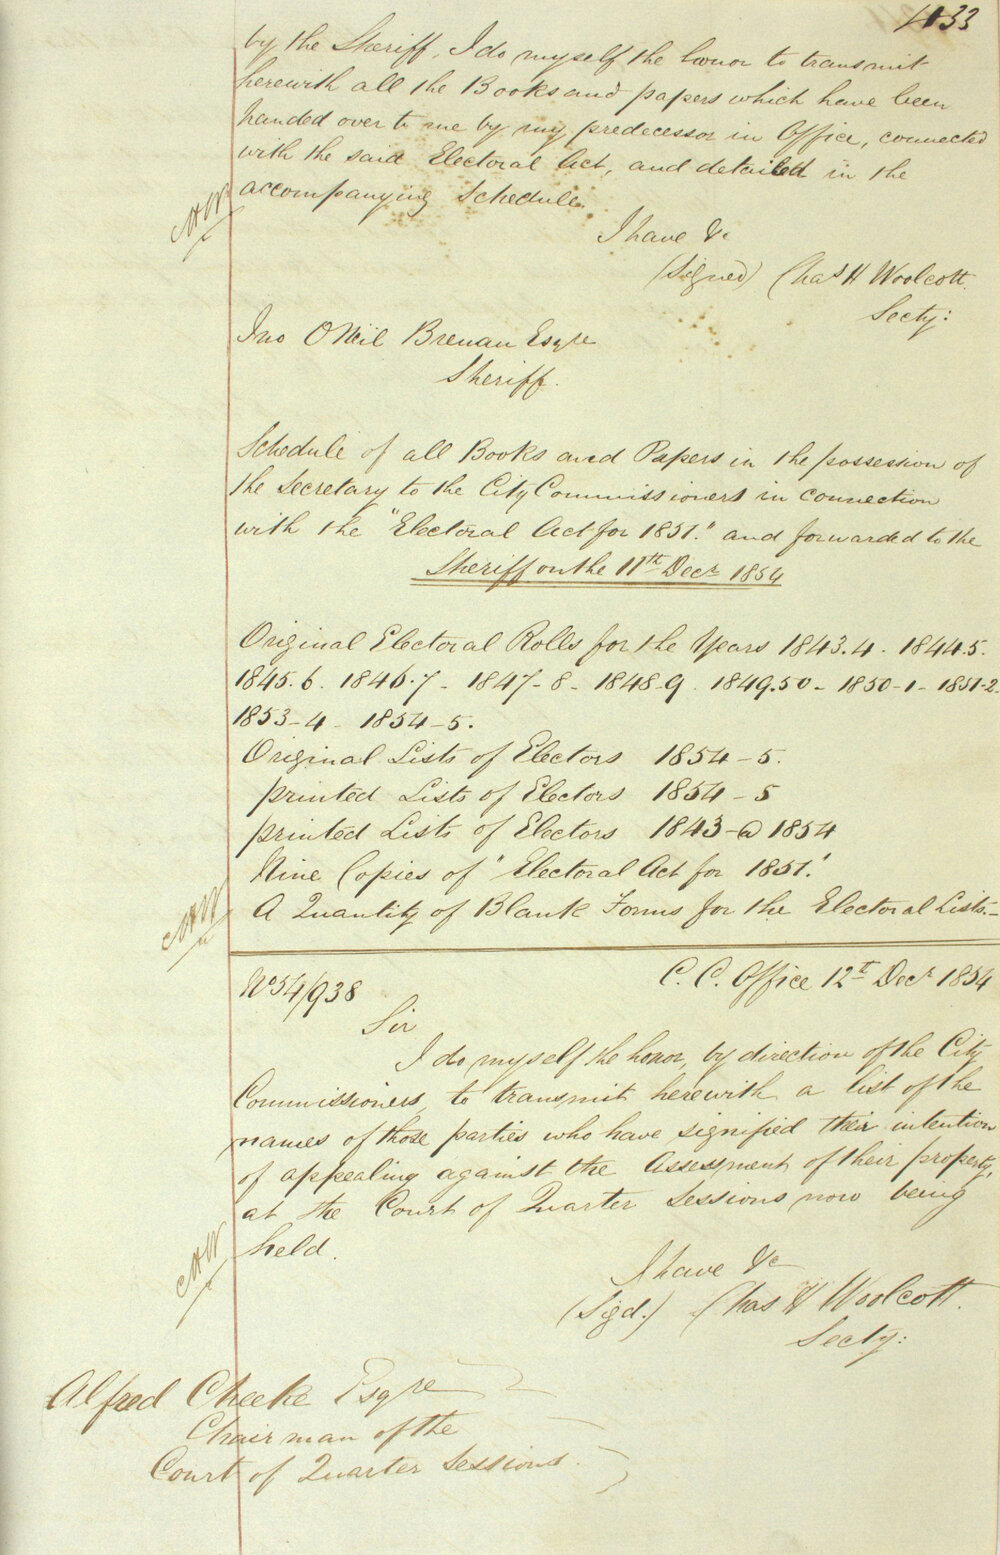 433
by the Sheriff, I do myself the honor to transmit
herewith all the Books and papers which have been
handed over to me by my predecessor in Office, connected
with the said Electoral Act, and detailed in the
accompanying Schedule.
CHW
I have &c
(Signed) Chas H Woolcott.
Secty:
Jno O'Neil Brenan Esqre
Sheriff.
Schedule of all Books and Papers in the possession of
the Secretary to the City Commissioners in connection
with the "Electoral Act for 1851." and forwarded to the
Sheriff on the 11th Decr 1854
Original Electoral Rolls for the Years 1843.4. 1844.5.
1845.6. 1846.7 - 1847-8 - 1848-9. 1849.50 - 1850-1 - 1851-2
1853-4 - 1854-5.
Original Lists of Electors 1854-5.
printed Lists of Electors 1854-5
printed Lists of Electors 1843-@ 1854
Nine Copies of "Electoral Act for 1851."
A Quantity of Blank Forms for the Electoral Lists.-
CHW
No 54/938
C. C. Office 12th Decr 1854
Sir
I do myself the honor, by direction of the City
Commissioners, to transmit herewith a list of the
names of those parties who have signified their intention
of appealing against the Assessment of their property,
at the Court of Quarter Sessions now being
held.
CHW
I have &c
(Sigd.) Chas H Woolcott.
Secty:
Alfred Cheeke Esqre
Chairman of the
Court of Quarter Sessions.